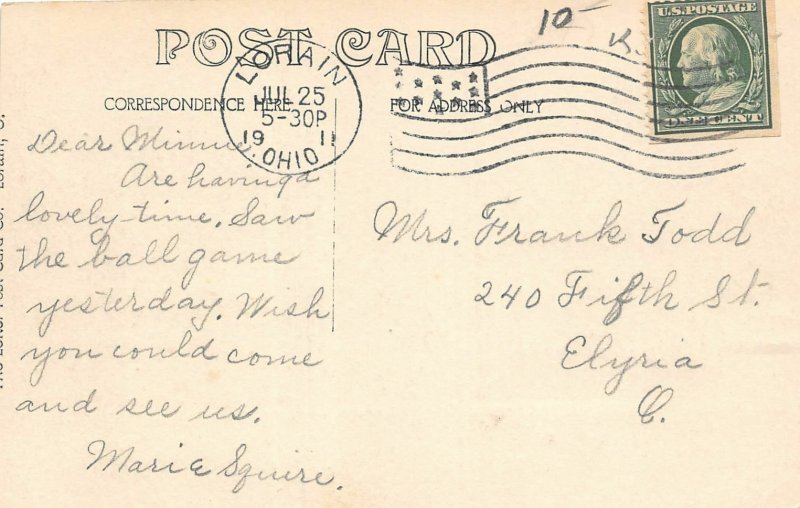 10-
U.S. POSTAGE
ONE CENT
POST CARD
LORAIN
JUL 25
5-30P
1911
OHIO
CORRESPONDENCE HERE
FOR ADDRESS ONLY
Dear Minnie,
Are having a
lovely time. Saw
the ball game
yesterday. Wish
you could come
and see us.
Marie Squire.
Mrs. Frank Todd
240 Fifth St.
Elyria
O.
Post Card Co. Lorain, O.